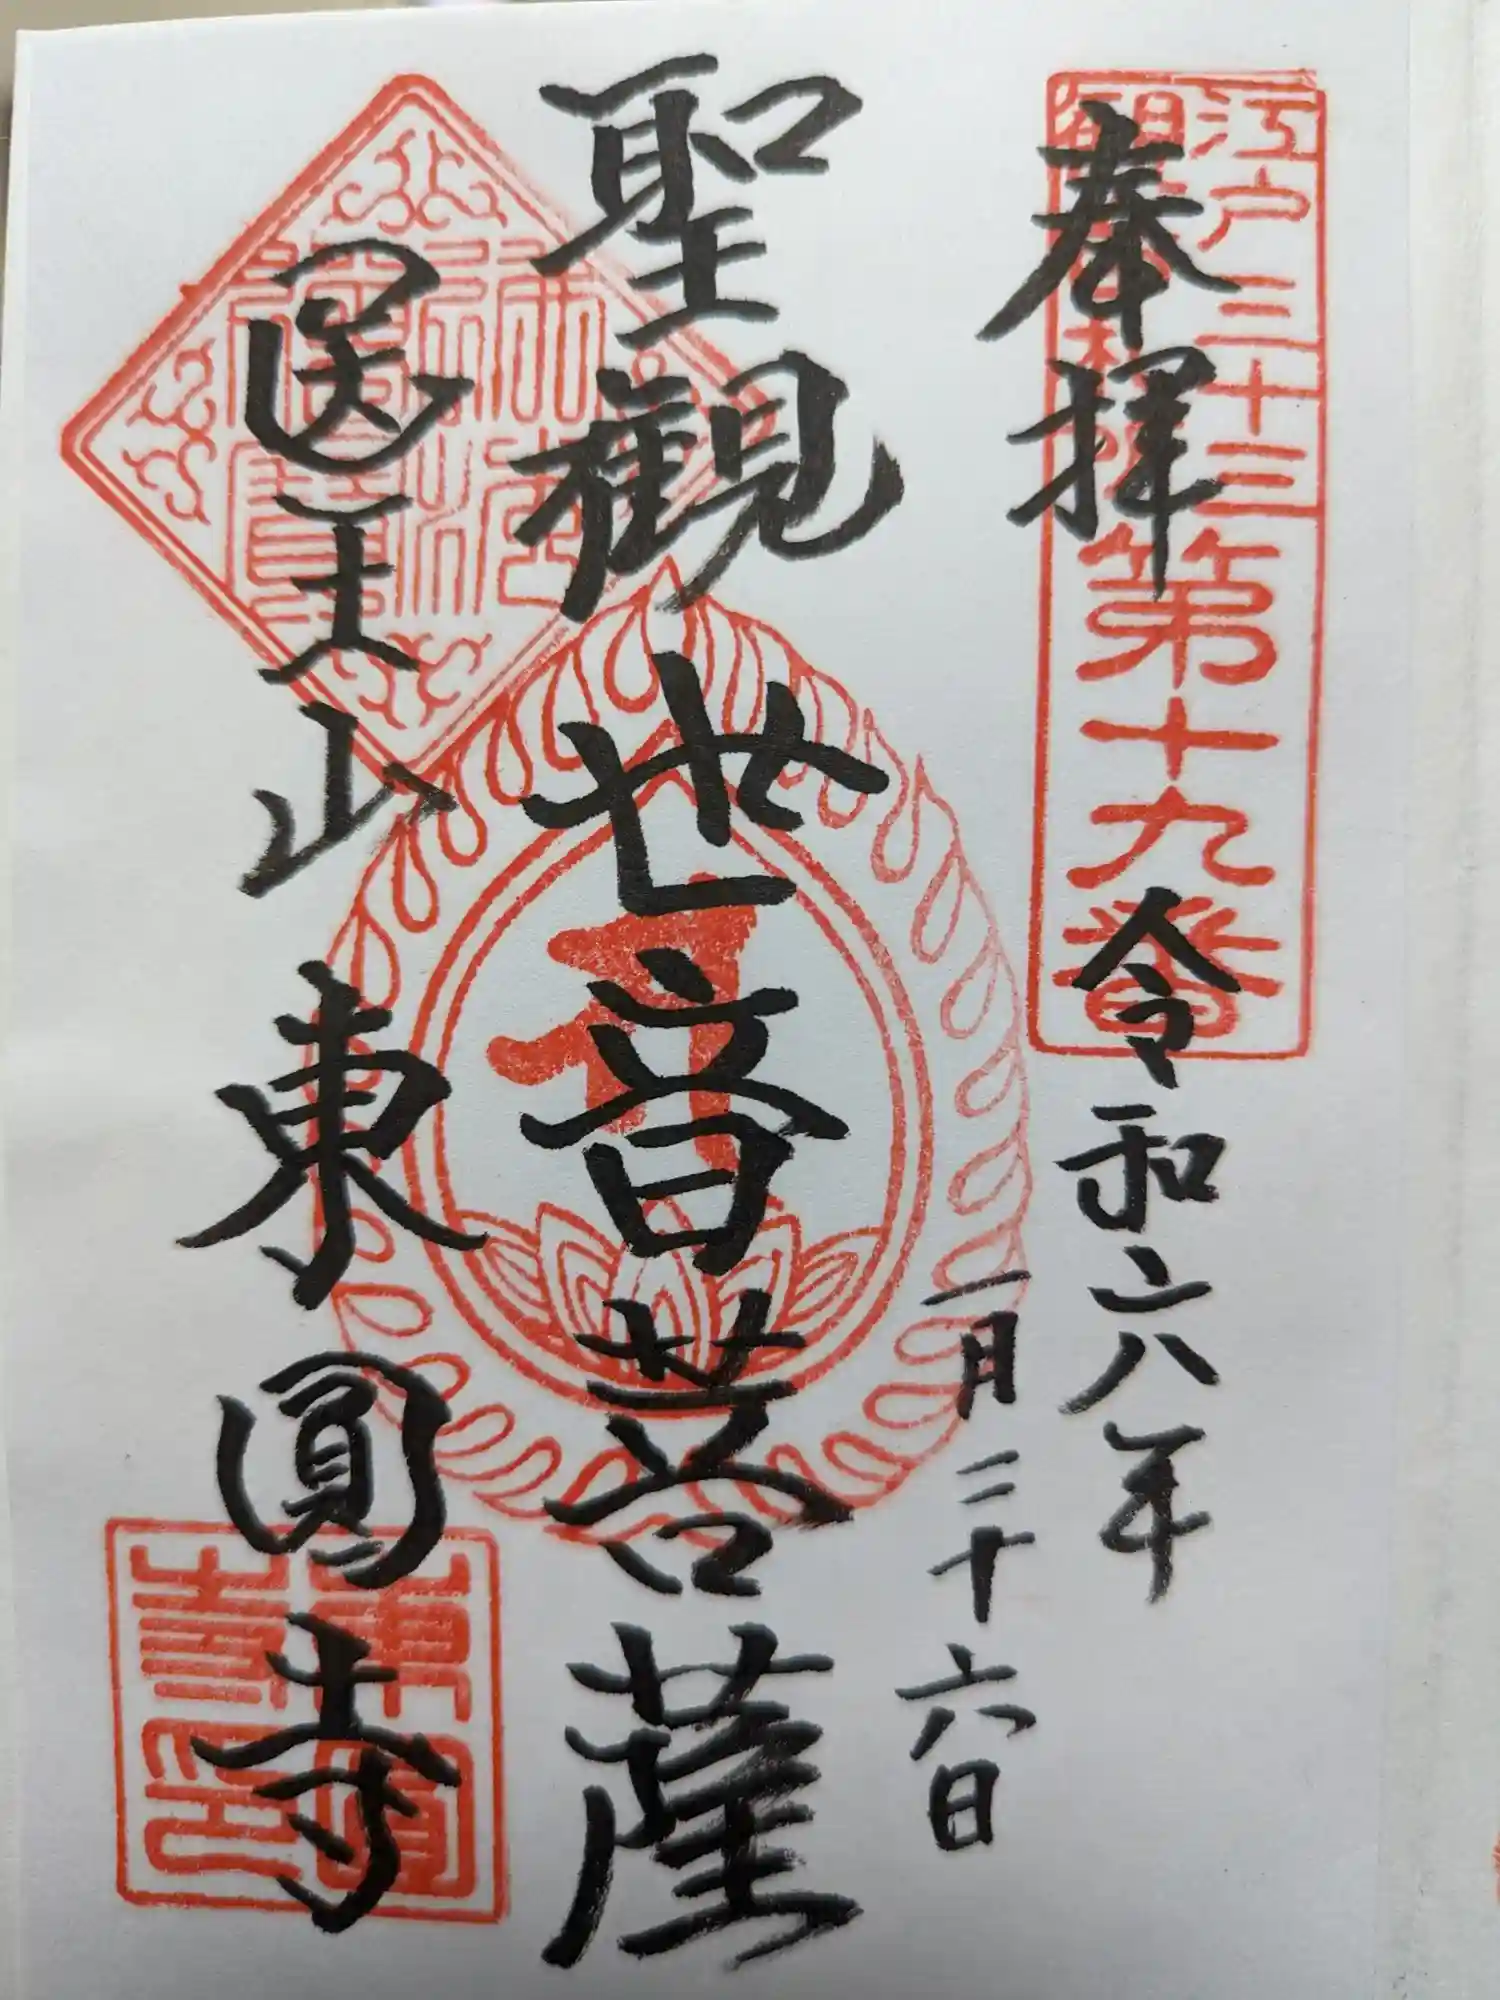 江戸三十三
観音札所
第十九番
奉拝
令和六年
一月二十六日
聖観世音菩薩
医王山
東圓寺
東圓寺印